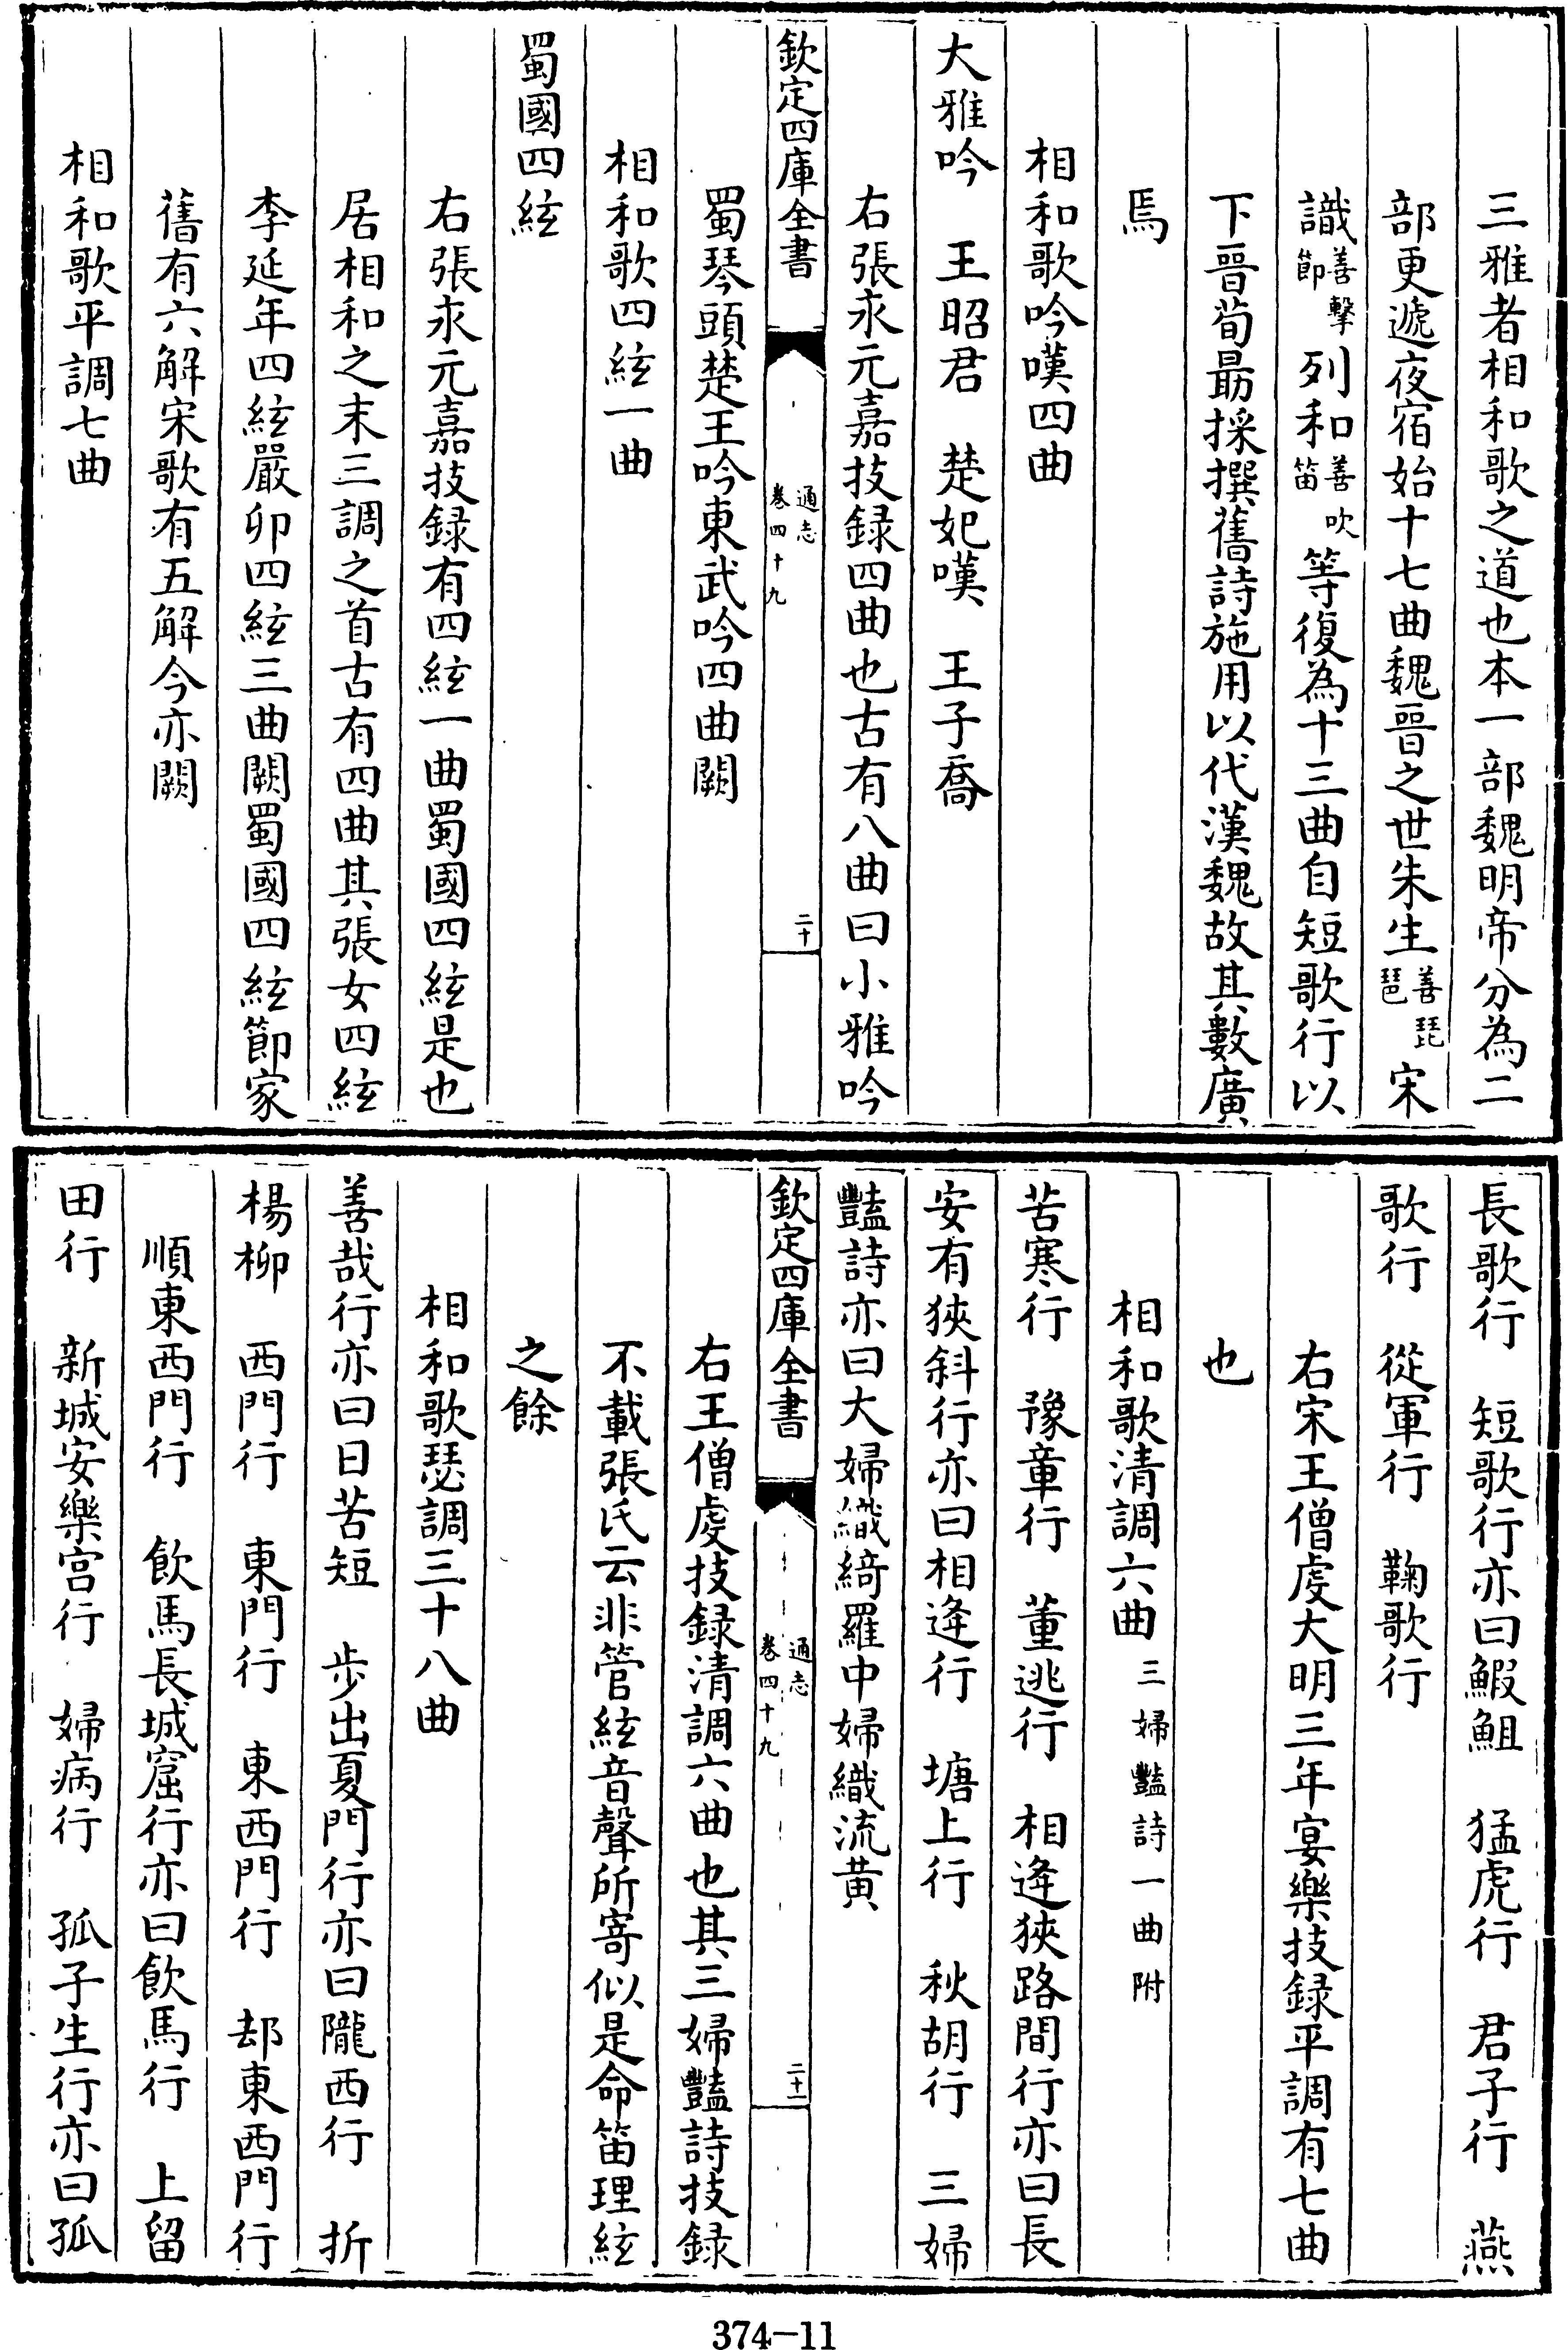 三雅者相和歌之道也本一部魏明帝分為二
部更遞夜宿始十七曲魏晉之世朱生善琵琶宋
識善擊節列和善吹笛等復為十三曲自短歌行以
下晉荀勗採撰舊詩施用以代漢魏故其數廣
焉
相和歌吟嘆四曲
大雅吟　王昭君　楚妃嘆　王子喬
右張永元嘉技録四曲也古有八曲曰小雅吟
欽定四庫全書　通志卷四十九　二十
蜀琴頭楚王吟東武吟四曲闕
相和歌四絃一曲
蜀國四絃
右張永元嘉技録有四絃一曲蜀國四絃是也
居相和之末三調之首古有四曲其張女四絃
李延年四絃嚴卯四絃三曲闕蜀國四絃節家
舊有六解宋歌有五解今亦闕
相和歌平調七曲
長歌行　短歌行亦曰鰕䱇　猛虎行　君子行　燕
歌行　從軍行　鞠歌行
右宋王僧虔大明三年宴樂技録平調有七曲
也
相和歌清調六曲三婦豔詩一曲附
苦寒行　豫章行　董逃行　相逄狹路間行亦曰長
安有狹斜行亦曰相逄行　塘上行　秋胡行　三婦
豔詩亦曰大婦織綺羅中婦織流黄
欽定四庫全書　通志卷四十九　二十一
右王僧虔技録清調六曲也其三婦豔詩技録
不載張氏云非管絃音聲所寄似是命笛理絃
之餘
相和歌瑟調三十八曲
善哉行亦曰日苦短　步出夏門行亦曰隴西行　折
楊柳　西門行　東門行　東西門行　却東西門行
順東西門行　飲馬長城窟行亦曰飲馬行　上留
田行　新城安樂宫行　婦病行　孤子生行亦曰孤
374-11